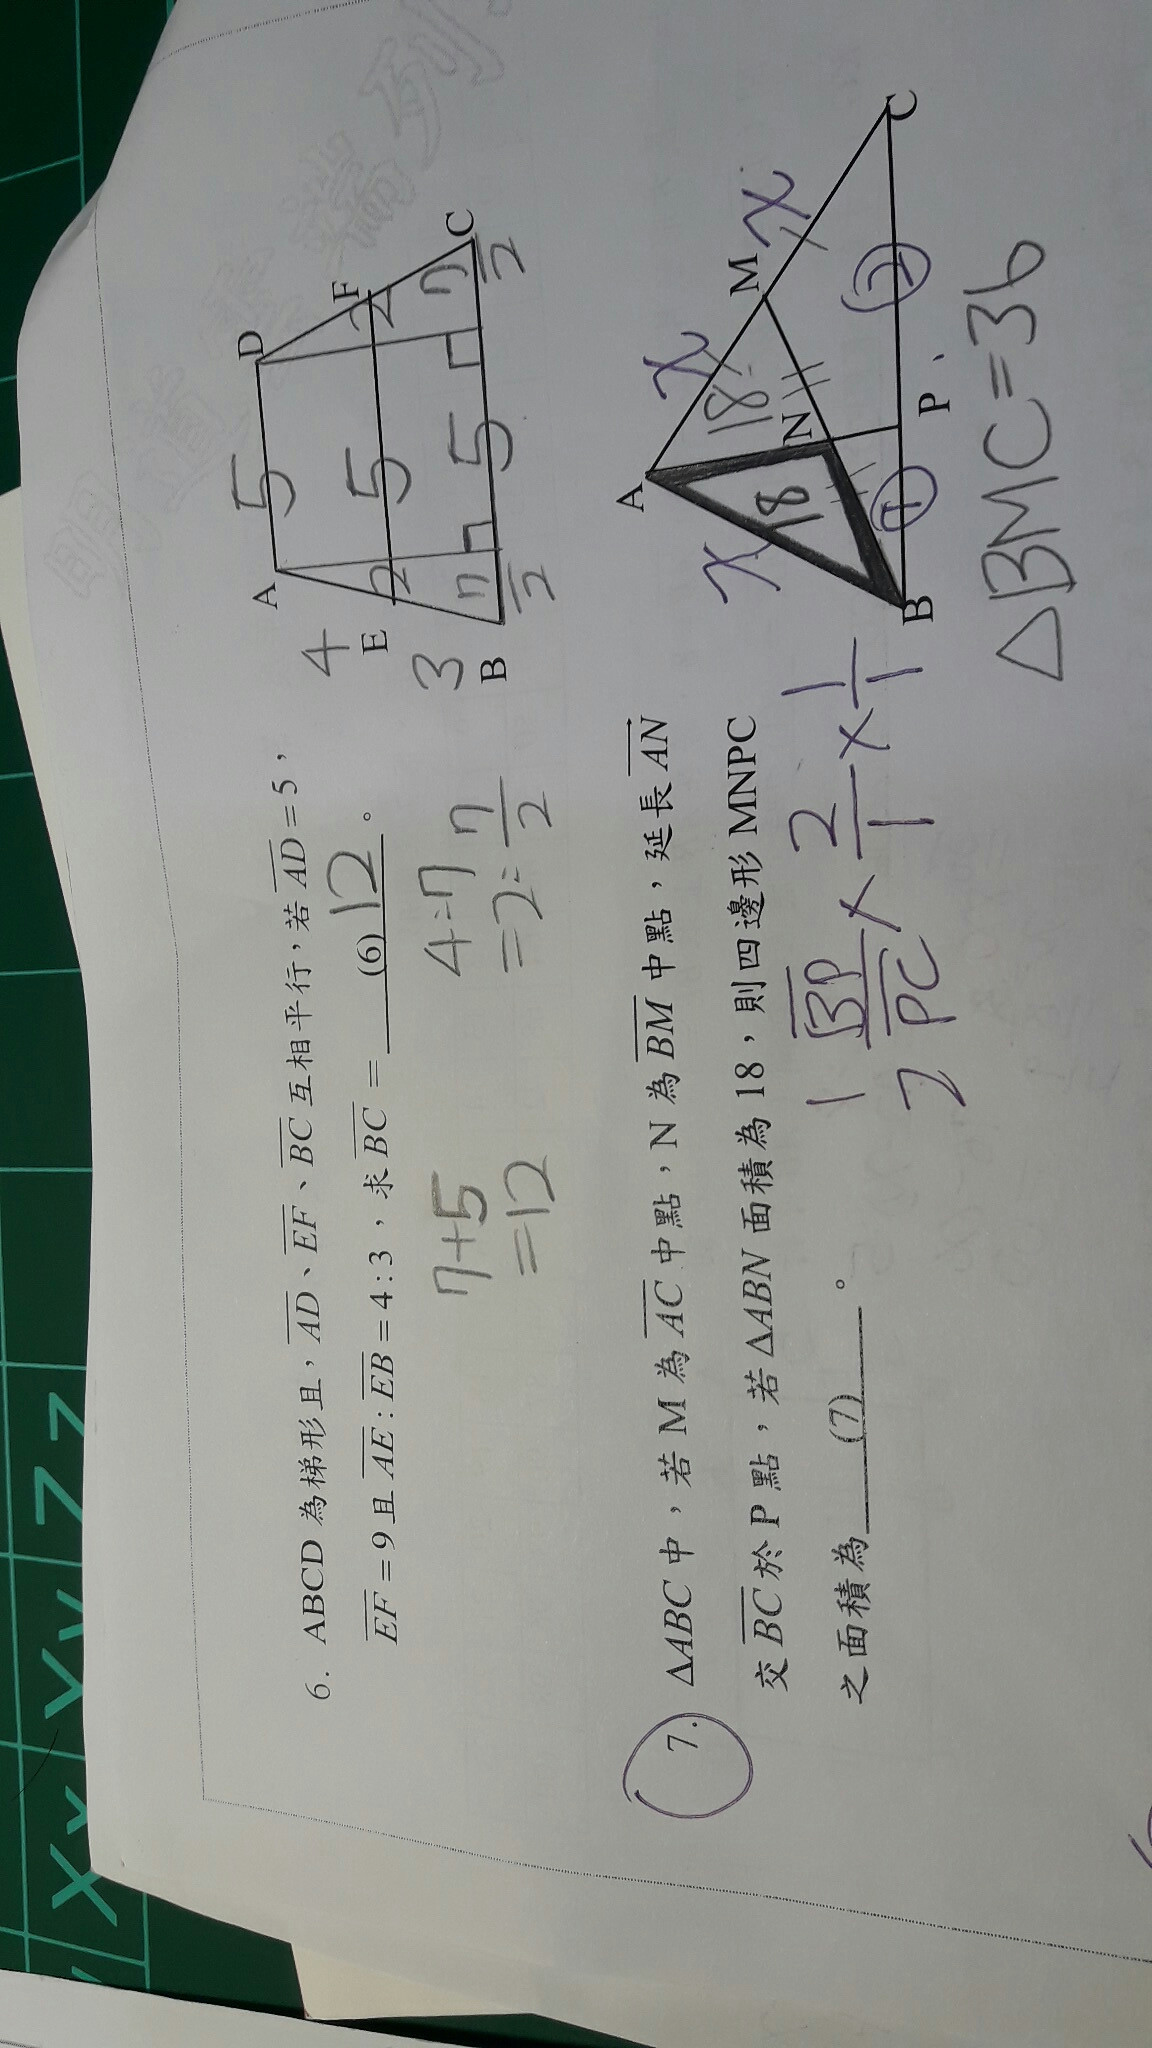 6. ABCD 為梯形且，AD、EF、BC 互相平行，若 AD = 5，
EF = 9 且 AE : EB = 4 : 3，求 BC = (6) 12 。
7+5
=12
4:7
=2:7/2
A
5
D
4
E
2
5
2
F
3
B
7/2
5
7/2
C
7. ΔABC 中，若 M 為 AC 中點，N 為 BM 中點，延長 AN
交 BC 於 P 點，若 ΔABN 面積為 18，則四邊形 MNPC
之面積為 (7) 。
1 BP/2 PC × 2/1 × 1/1
A
x
x
18
18
M
x
N
B
1
P
2
C
△BMC=36
Xx Yy Zz